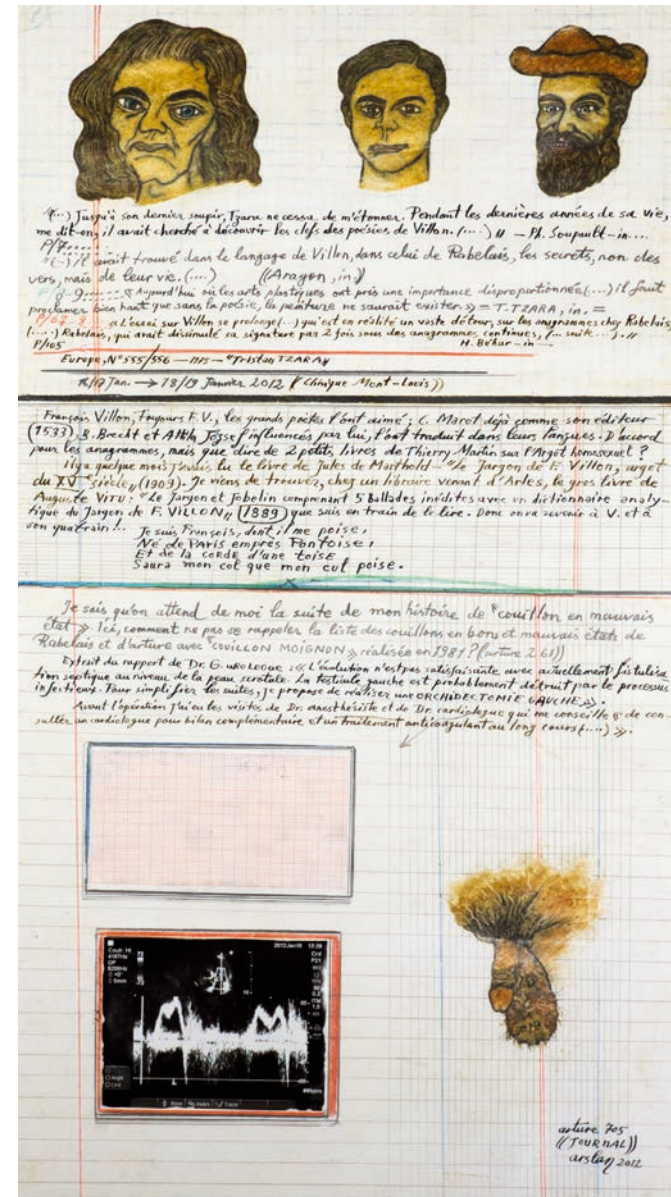 "(...) Jusqu'à son dernier soupir, Tzara ne cessa de m'étonner. Pendant les dernières années de sa vie,
me dit-on, il avait cherché à découvrir les clefs des poésies de Villon. (....) » — Ph. Soupault - in....
P/7........
"(...) il avait trouvé dans le langage de Villon, dans celui de Rabelais, les secrets, non des
vers, mais de leur vie. (....) ((Aragon, in.))
P/8-9........ « Aujourd'hui où les arts plastiques ont pris une importance disproportionnée (....) il faut
proclamer bien haut que sans la poésie, la peinture ne saurait exister » = T. TZARA, in. =
« L'essai sur Villon se prolonge (...) qui est en réalité un vaste détour, sur les anagrammes chez Rabelais,
(.....) Rabelais, qui avait dissimulé sa signature par 2 fois sous des anagrammes continues, (... suite ....). »
P/105 H. Béhar - in —
Europe, N° 555/556 — — "Tristan TZARA"
16/17 Jan. → 18/19 Janvier 2012 ((Clinique Mont-Louis))
François Villon, toujours F.V., les grands poètes l'ont aimé ; C. Marot déjà comme son éditeur
(1533), B. Brecht et Attila József influencés par lui, l'ont traduit dans leurs langues. D'accord
pour les anagrammes, mais que dire de 2 petits livres de Thierry Martin sur l'Argot homosexuel ?
il y a quelque mois j'avais lu le livre de Jules de Marthold — "Le Jargon de F. Villon, argot
du XVe siècle" (1909). Je viens de trouver, chez un libraire venant d'Arles, le gros livre de
Auguste Vitu : "Le Jargon et Jobelin comprenant 5 ballades inédites avec un dictionnaire analy-
tique du Jargon de F. VILLON" (1889) que suis en train de le lire. Donc on va revenir à V. et à
son quatrain !..
Je suis François, dont il me poise,
Né de Paris emprès Pontoise,
Et de la corde d'une toise
Saura mon col que mon cul poise.
Je sais qu'on attend de moi la suite de mon histoire de "couillon en mauvais
état ». Ici, comment ne pas se rappeler la liste des couillons en bons et mauvais états de
Rabelais et d'arture avec "COUILLON MOIGNON » réalisée en 1981 ? (arture 261))
Extrait du rapport de Dr. G. UROLOGUE : « L'évolution n'est pas satisfaisante avec actuellement fistulisa
tion septique au niveau de la peau scrotale. La testicule gauche est probablement détruit par le processus
infectieux. Pour simplifier les suites, je propose de réaliser une ORCHIDECTOMIE GAUCHE ».
Avant l'opération j'ai eu les visites de Dr. anesthésiste et de Dr. cardiologue qui me conseille « de con-
sulter un cardiologue pour bilan complémentaire et un traitement anticoagulant au long cours (....) ».
2012Jan16
arture 705
((JOURNAL))
arslan 2012